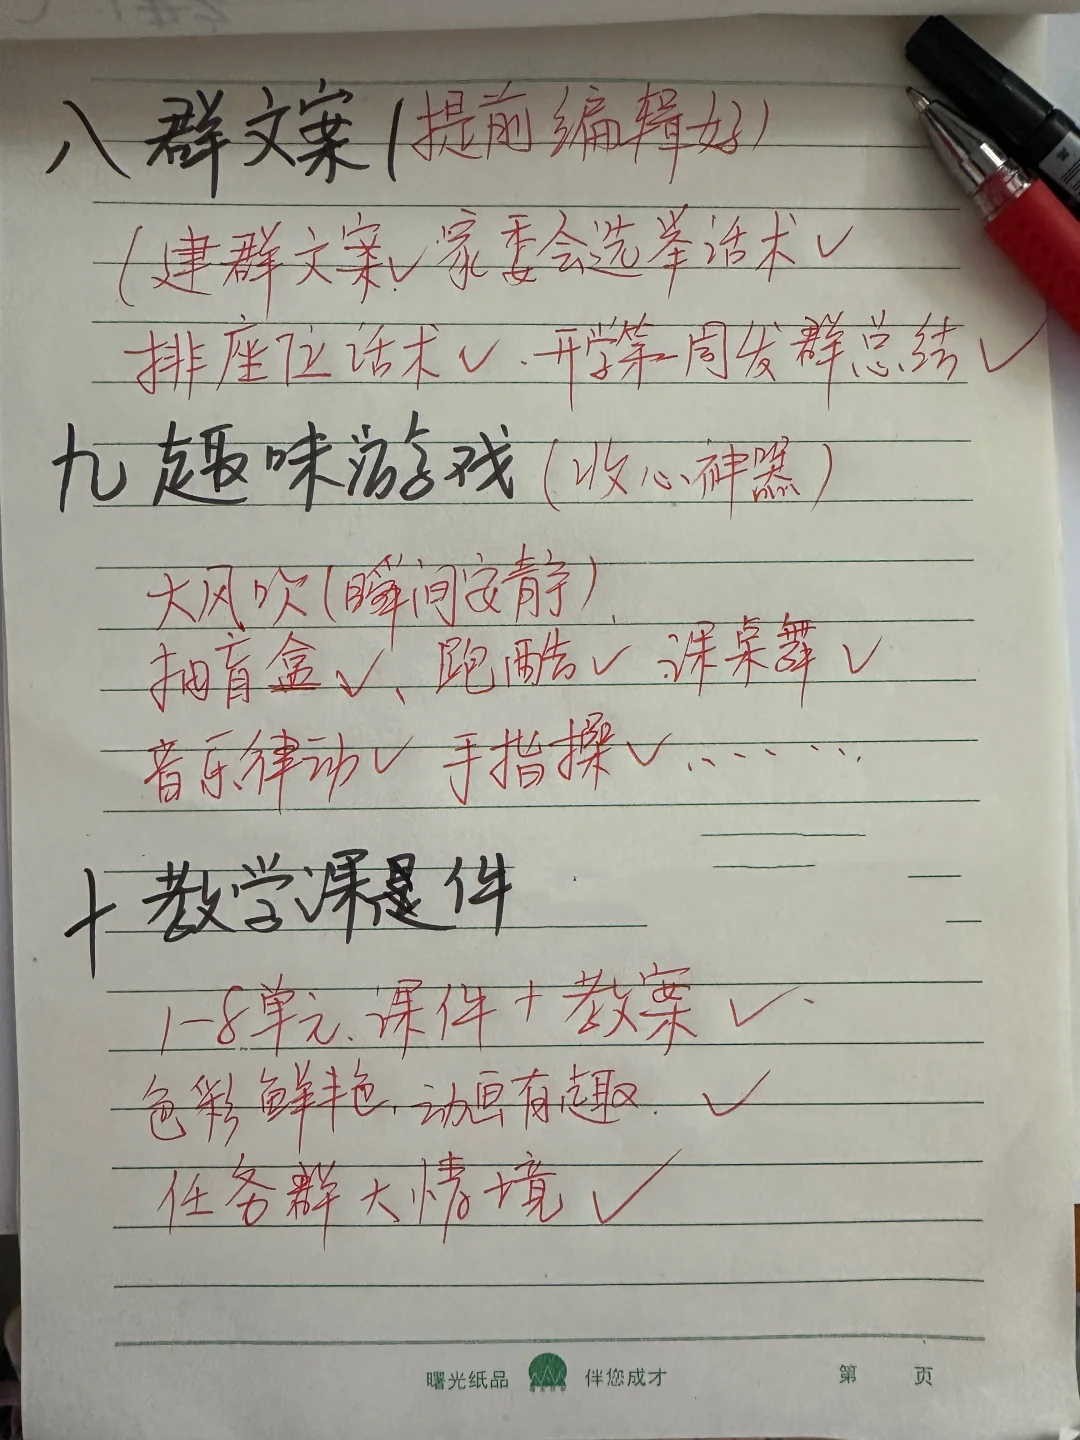 八 群文案(提前编辑好)
(建群文案✓ 家委会选举话术✓
排座位话术✓、开学第一周发群总结✓
九 趣味游戏(收心神器)
大风吹(瞬间安静)
抽盲盒✓、跑酷✓ 课桌舞✓
音乐律动✓ 手指操✓ ……
十 教学课件
1-8单元、课件+教案✓
色彩鲜艳、动画有趣✓
任务群大情境✓
曙光纸品 伴您成才 第 页